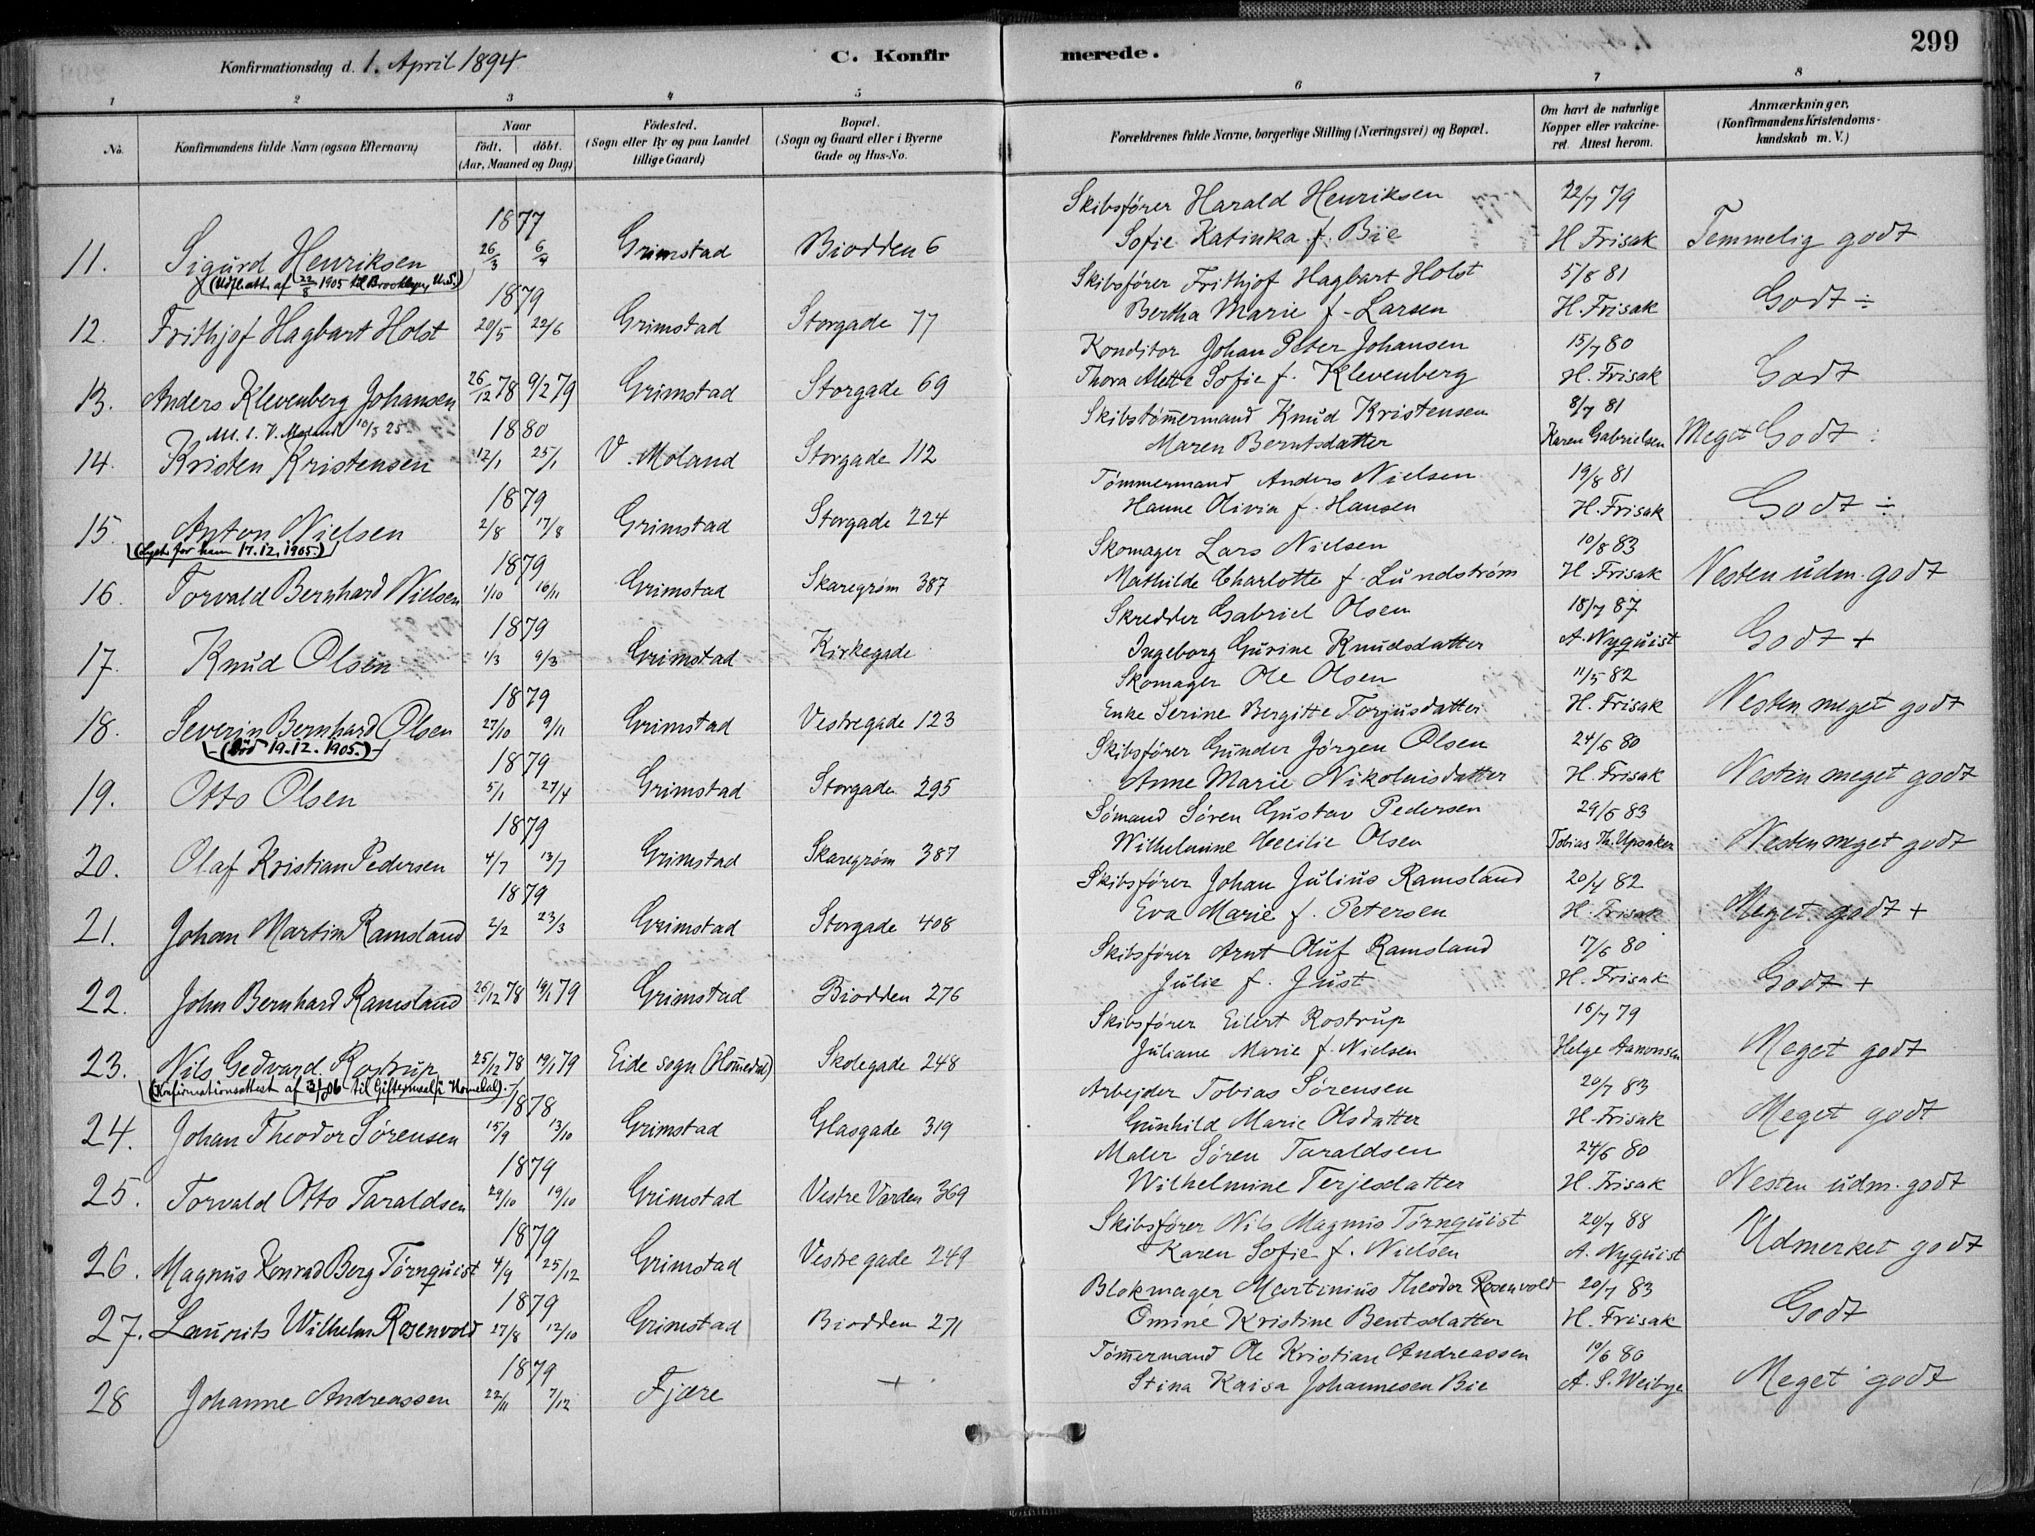 Konfirmationsdag d. 1. April 1894
C. Konfir
merede.
299
1 2 3 4 5 6 7 8
No.
Konfirmandens fulde Navn (ogsaa Efternavn)
Naar
födt. döbt.
(Aar, Maaned og Dag)
Födested.
(Sogn eller By og paa Landet
tillige Gaard)
Bopæl.
(Sogn og Gaard eller i Byerne
Gade og Hus-No.
Forældrenes fulde Navne, borgerlige Stilling (Næringsvei) og Bopæl.
Om havt de naturlige
Kopper eller vakcine-
ret. Attest herom.
Anmærkninger.
(Konfirmandens Kristendoms-
kundskab m. V.)
1877 Skibsfører Harald Henriksen 22/7 79
11. Sigurd Henriksen 26/3 6/4 Grimstad Biodden 6 Sofie Katinka f. Bie H Frisak Temmelig godt
(Udfl.att. af 22/8 1905 til Brooklyn, U.S.)
1879 Skibsfører Frithjof Hagbart Holst 5/8 81
12. Frithjof Hagbart Holst 20/5 22/6 Grimstad Storgade 77 Bertha Marie f. Larsen H. Frisak Godt ÷
Konditor Johan Peter Johansen 15/7 80
13. Anders Klevenberg Johansen 26/12 78 9/2 79 Grimstad Storgade 69 Thora Alette Sofie f. Klevenberg H. Frisak Godt
Att. t. V. Moland 10/3 25
1880 Skibstømermand Knud Kristensen 8/7 81
14. Kristen Kristensen 12/1 25/1 V. Moland Storgade 112 Maren Berntsdatter Karen Gabrielsen Meget Godt
1879 Tømmermand Anders Nielsen 19/8 81
15. Anton Nielsen 2/8 17/8 Grimstad Storgade 224 Hanne Olivia f. Hansen H. Frisak Godt ÷
(Lyst for ham 17.12.1905.)
1879 Skomager Lars Nielsen 10/8 83
16. Torvald Bernhard Nielsen 1/10 16/11 Grimstad Skaregrøm 387 Mathilde Charlotte f. Lundstrøm H Frisak Nesten udm. godt
1879 Skredder Gabriel Olsen 18/7 87
17. Knud Olsen 1/3 9/3 Grimstad Kirkegade Ingeborg Gurine Knudsdatter A. Nyquist Godt +
1879 Skomager Ole Olsen 11/5 82
18. Severin Bernhard Olsen 27/10 9/11 Grimstad Vestregade 123 Enke Serine Bergitte Torjusdatter H. Frisak Nesten meget godt
(Död 19.12.1905.)
1879 Skibsfører Gunder Jørgen Olsen 24/6 80
19. Otto Olsen 5/1 27/4 Grimstad Storgade 295 Anne Marie Nikolaisdatter H. Frisak Nesten meget godt
1879 Sømand Søren Gustav Pedersen 29/6 83
20. Olaf Kristian Pedersen 4/7 13/7 Grimstad Skaregrøm 387 Wilhelmine Cecilie Olsen Tobias Th. Upsaker Nesten meget godt
1879 Skibsfører Johan Julius Ramsland 20/4 82
21. Johan Martin Ramsland 2/2 23/3 Grimstad Storgade 408 Eva Marie f. Petersen H. Frisak Meget godt +
Skibsfører Arnt Oluf Ramsland 17/6 80
22. John Bernhard Ramsland 26/12 78 19/1 79 Grimstad Biodden 276 Julie f. Just H. Frisak Godt +
Skibsfører Eilert Rostrup 16/7 79
23. Nils Gedvard Rostrup 25/12 78 19/1 79 Eide sogn (Homedal) Skolegade 248 Juliane Marie f. Nielsen Helge Aanonsen Meget godt
(Konfirmationsattest af 3/1 06 til Giftermaal i Homedal)
1878 Arbejder Tobias Sørensen 20/7 83
24. Johan Theodor Sørensen 15/9 13/10 Grimstad Glasgade 319 Gunhild Marie Olsdatter H. Frisak Meget godt
1879 Maler Søren Taraldsen 24/6 80
25. Torvald Otto Taraldsen 29/10 19/10 Grimstad Vestre Varden 369 Wilhelmine Terjesdatter H. Frisak Nesten udm. godt
1879 Skibsfører Nils Magnus Tørnquist 20/7 88
26. Magnus Konrad Berg Törnquist 4/9 25/12 Grimstad Vestregade 249 Karen Sofie f. Nielsen A. Nyquist Udmerket godt
1879 Blokmager Martinius Theodor Rosenvold 20/7 83
27. Laurits Wilhelm Rosenvold 27/8 12/10 Grimstad Biodden 271 Omine Kristine Bentsdatter H. Frisak Godt
1879 Tömermand Ole Kristian Andreassen 10/6 80
28 Johanne Andreassen 22/11 7/12 Fjære + Stina Kaisa Johannesen Bie A. S. Weibye Meget godt